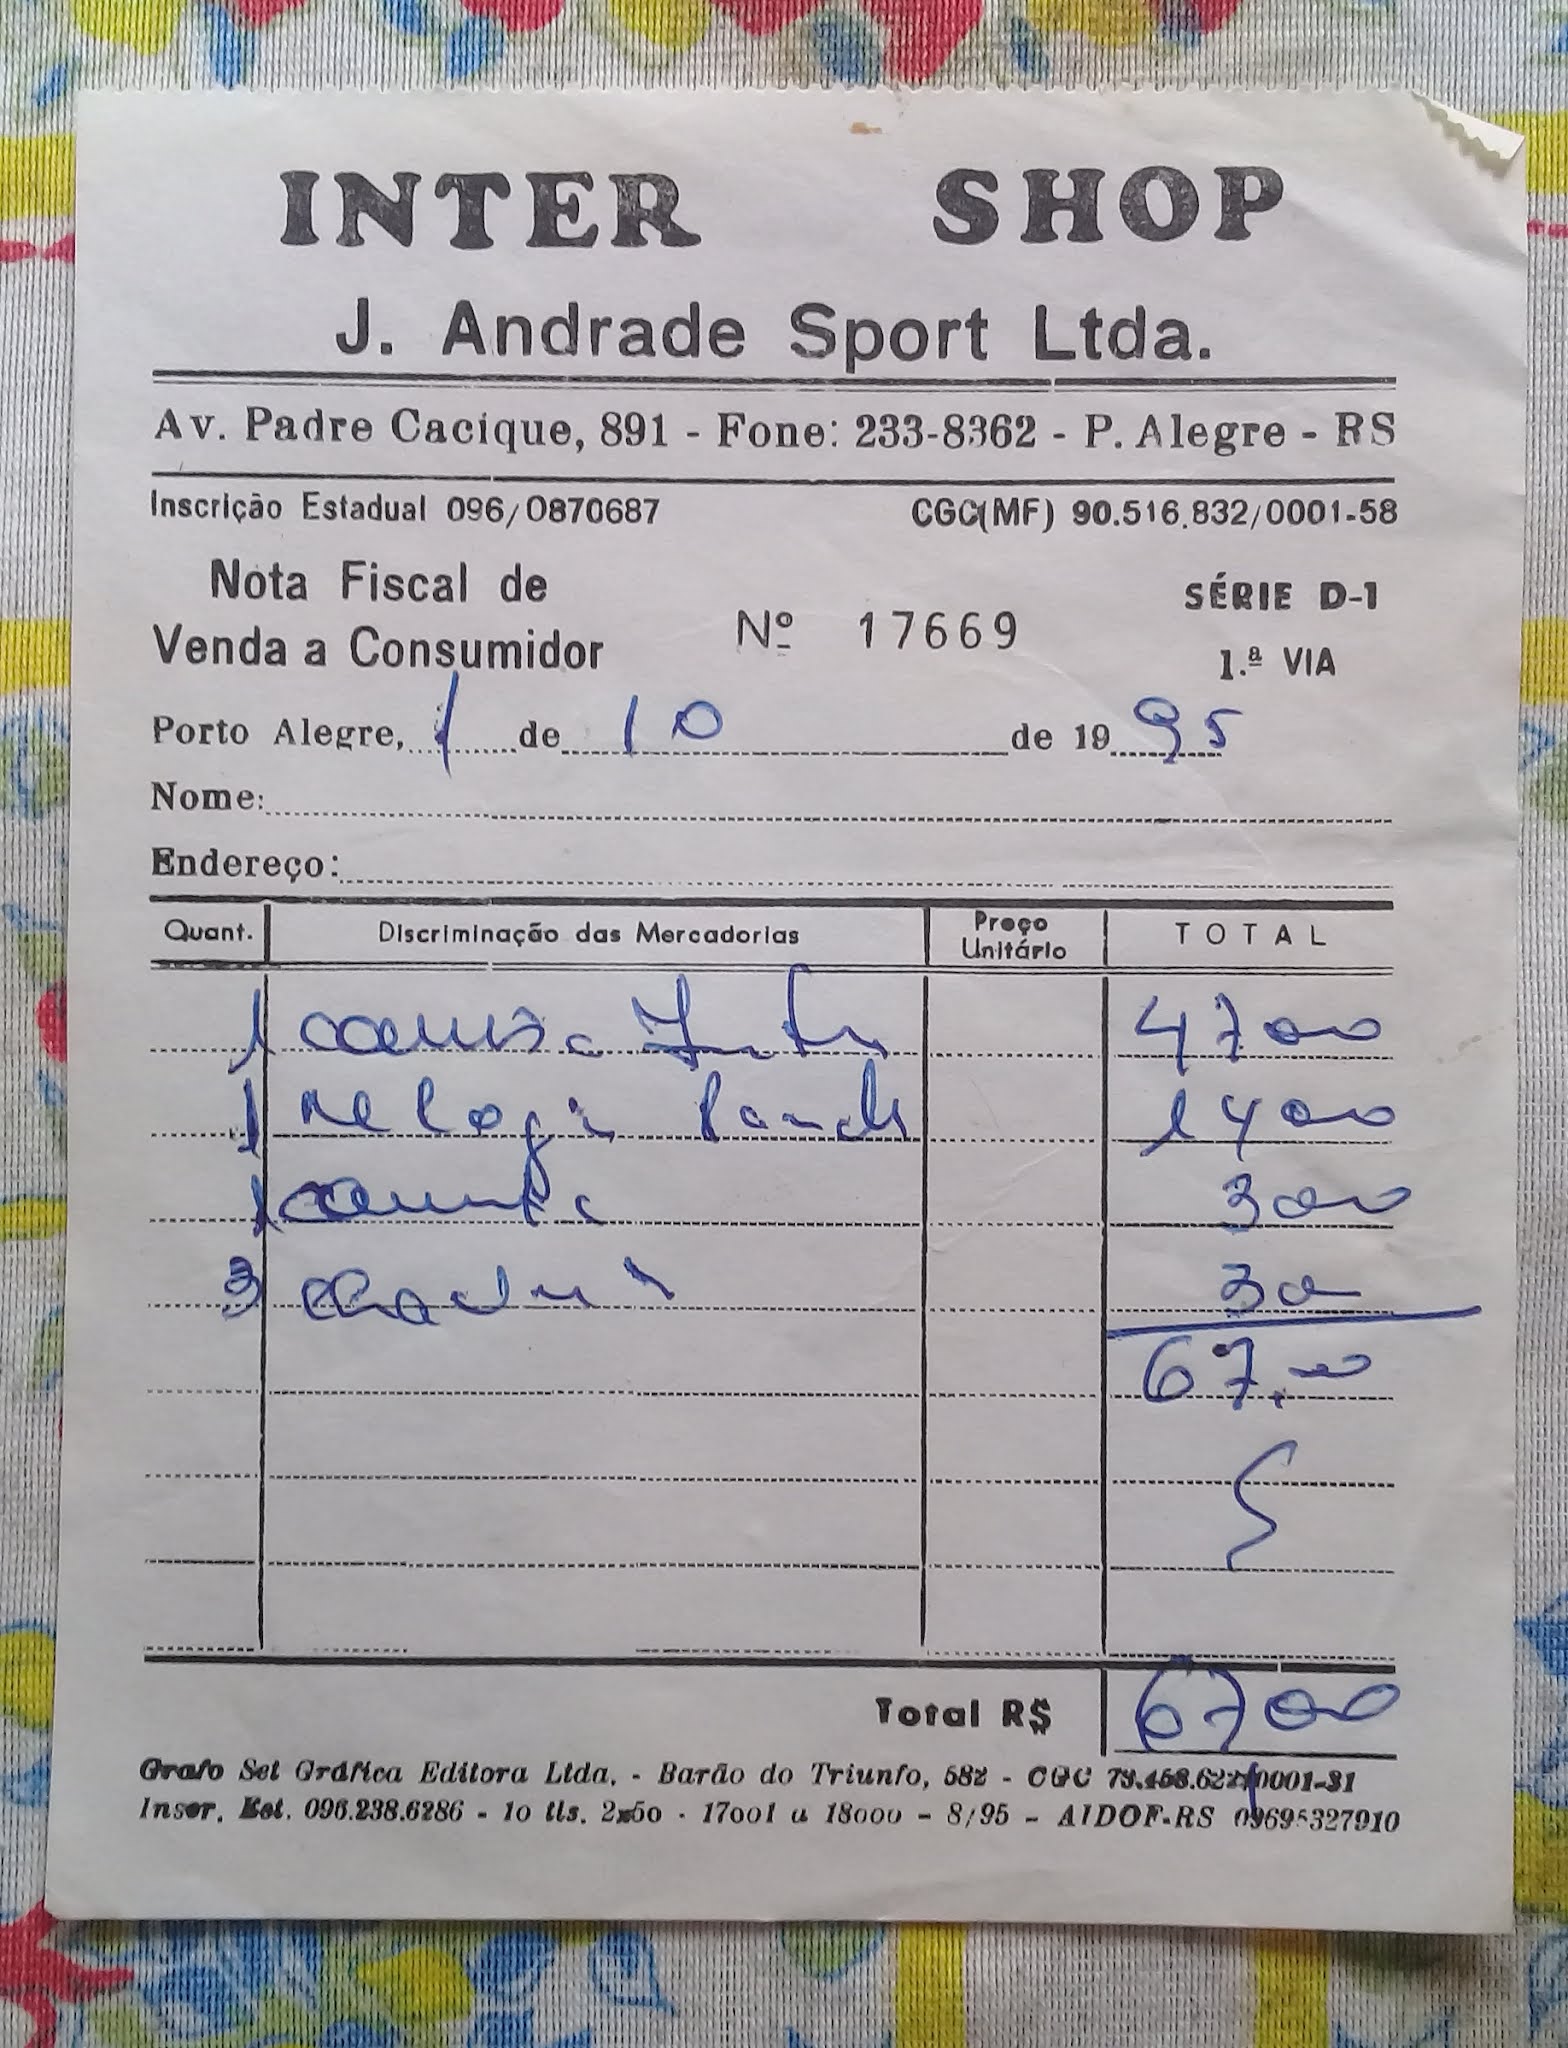 INTER SHOP
J. Andrade Sport Ltda.
Av. Padre Cacique, 891 - Fone: 233-8362 - P. Alegre - RS
Inscrição Estadual 096/0870687 CGC(MF) 90.516.832/0001-58
Nota Fiscal de
Venda a Consumidor
Nº 17669
SÉRIE D-1
1.ª VIA
Porto Alegre, 1 de 10 de 1995
Nome:
Endereço:
Quant. Discriminação das Mercadorias Preço Unitário TOTAL
1 camisa 4700
1 relogio 1400
1 300
3 300
67.00
Total R$ 6700
Grafo Set Gráfica Editora Ltda. - Barão do Triunfo, 582 - CGC
Inscr. Est. 096.238.6286 - 10 tls. 2x50 - 17001 a 18000 - 8/95 - AIDOF-RS